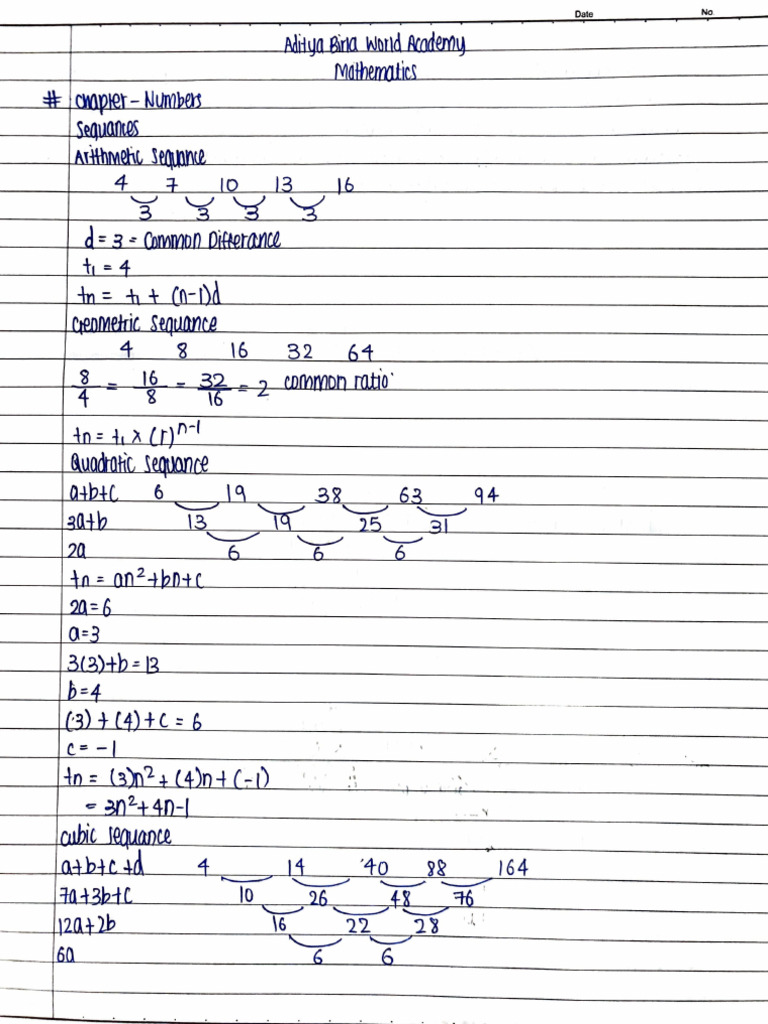 Date No.
Aditya Birla World Academy
Mathematics
# Chapter - Numbers
Sequances
Arithmetic Sequance
4 7 10 13 16
3 3 3 3
d = 3 = Common Differance
t₁ = 4
tn = t₁ + (n-1)d
Geometric Sequance
4 8 16 32 64
8/4 = 16/8 = 32/16 = 2 common ratio
tn = t₁ × (r)ⁿ⁻¹
Quadratic Sequance
a+b+c 6 19 38 63 94
3a+b 13 19 25 31
2a 6 6 6
tn = an²+bn+c
2a=6
a=3
3(3)+b=13
b=4
(3) + (4) + c = 6
c = -1
tn = (3)n² + (4)n + (-1)
= 3n²+4n-1
Cubic Sequance
a+b+c+d 4 14 40 88 164
7a+3b+c 10 26 48 76
12a+2b 16 22 28
6a 6 6